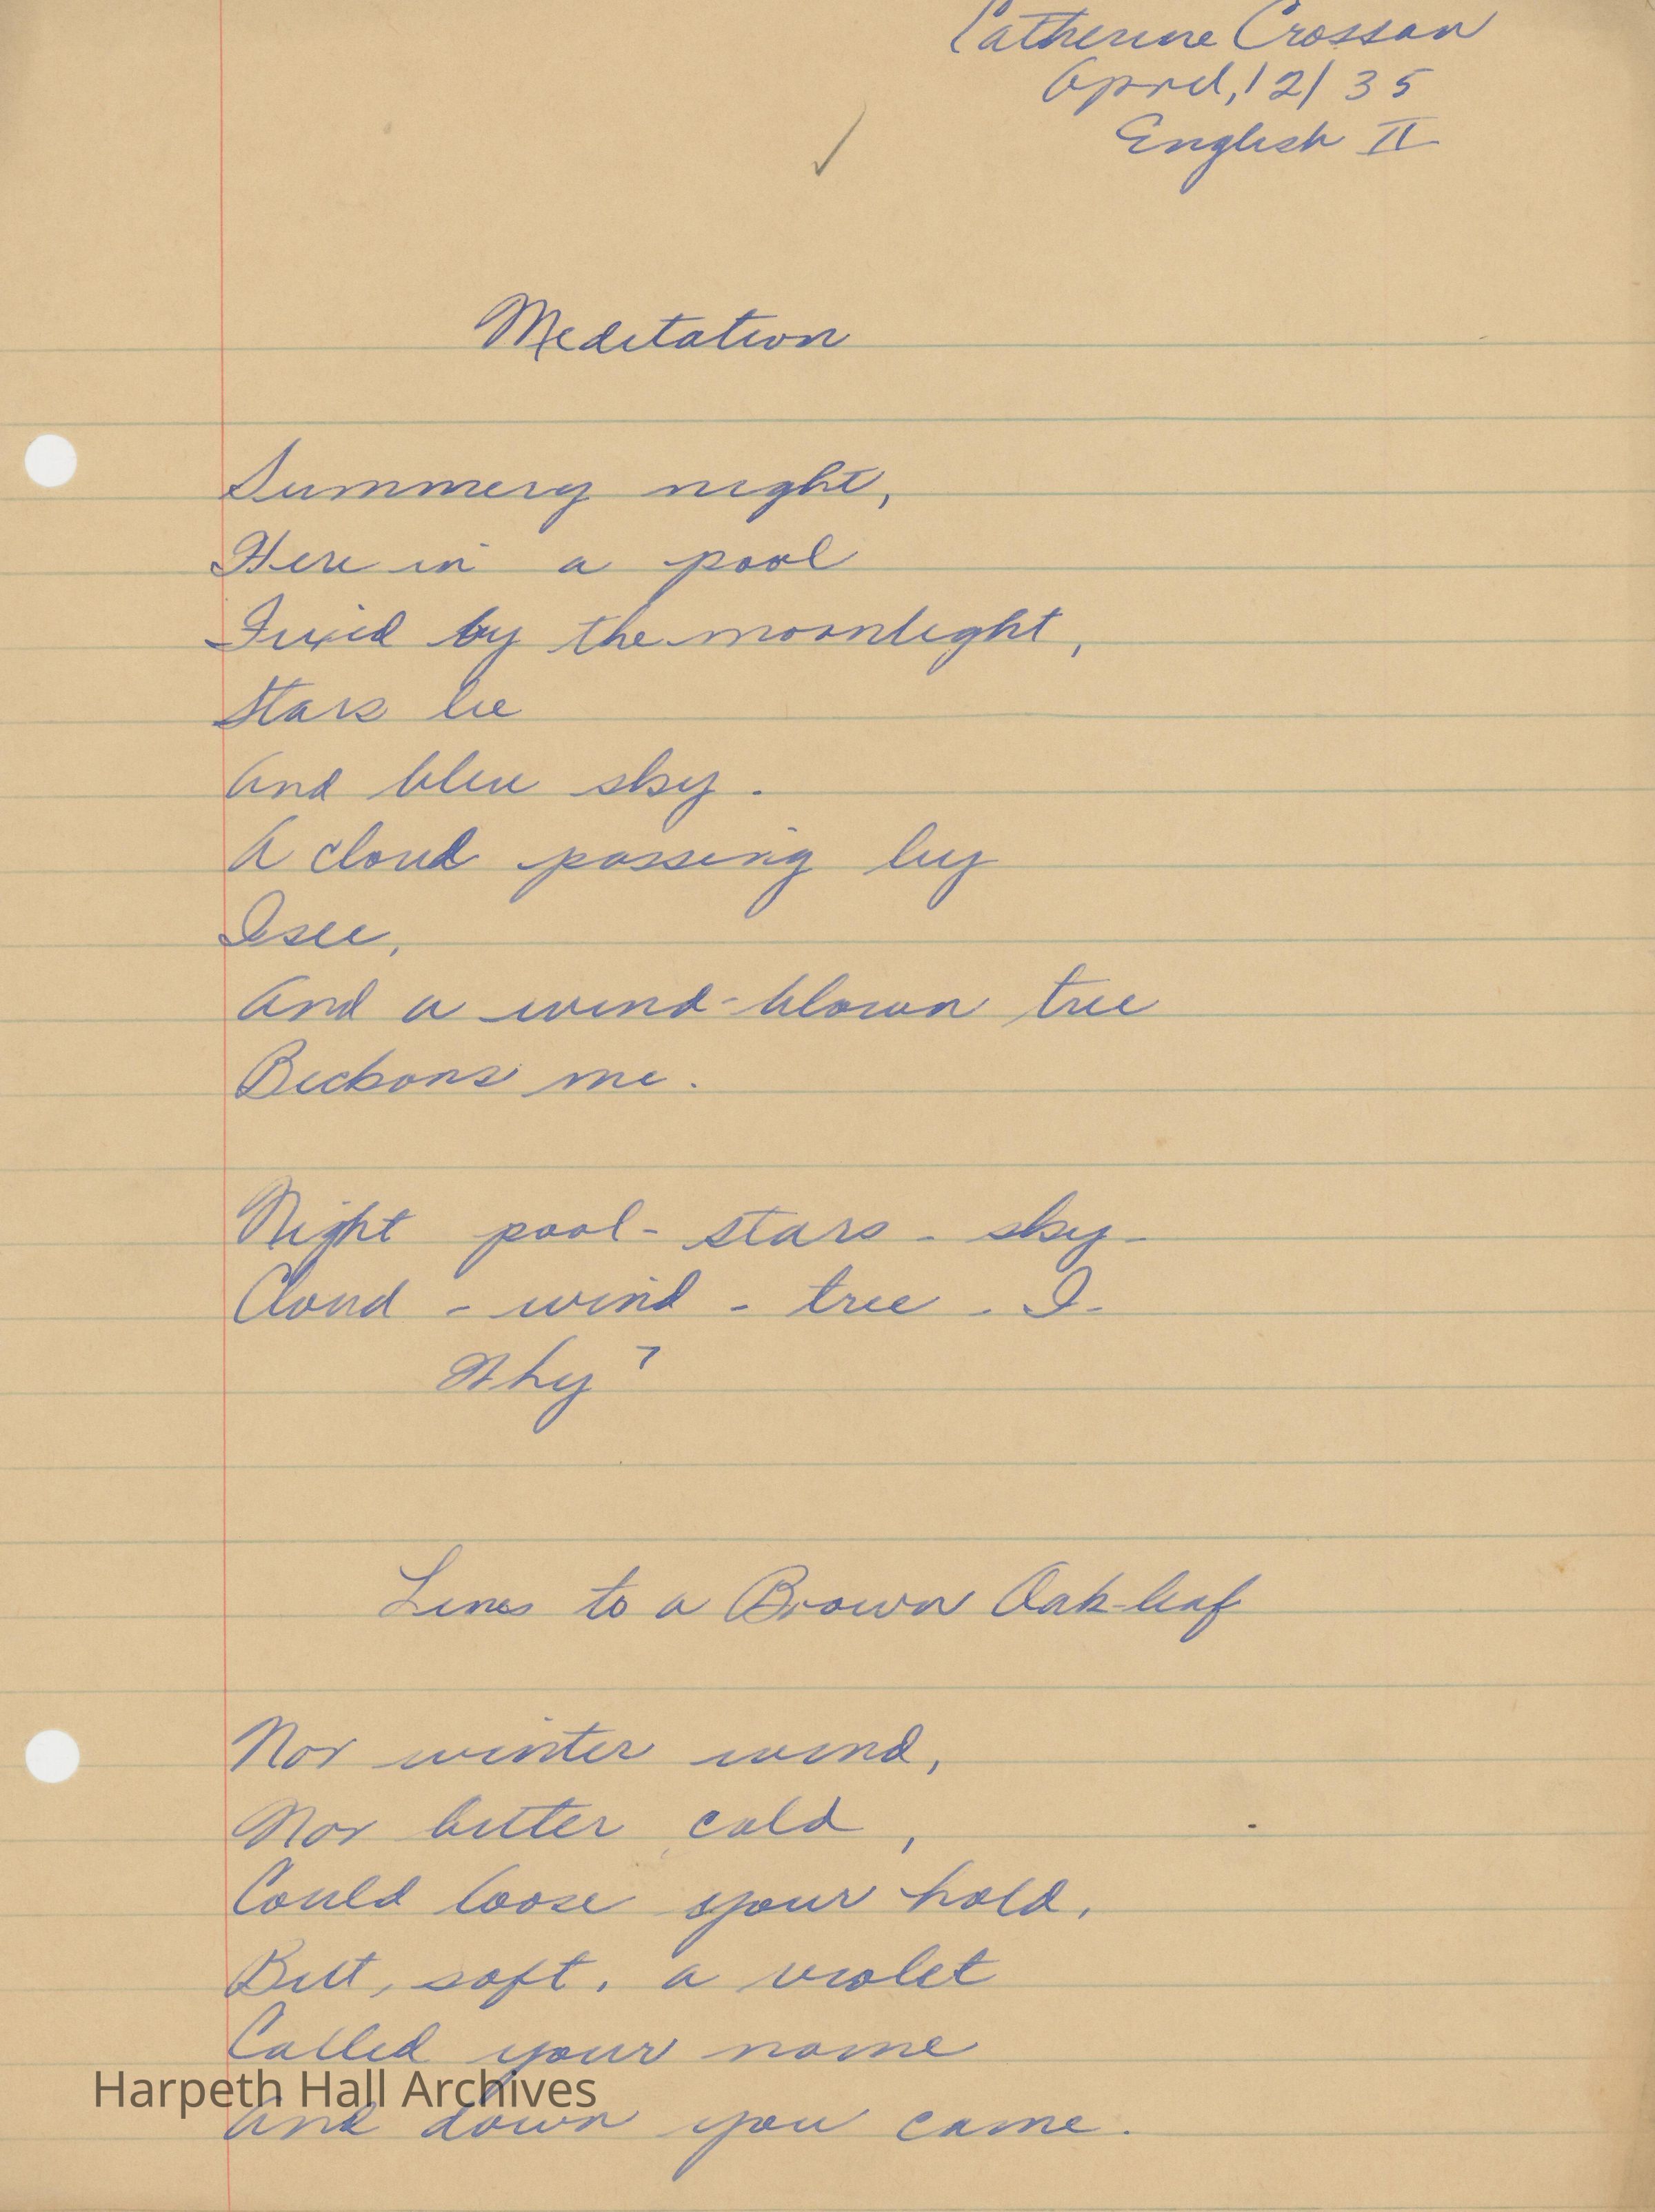 Catherine Crossan
April, 12/35
English II
Meditation
Summery night,
Here in a pool
Fixed by the moonlight,
Stars lie
And blue sky.
A cloud passing by
I see,
And a wind-blown tree
Beckons me.
Night pool- stars - sky-
Cloud - wind - tree - I-
Why?
Lines to a Brown Oak-leaf
Nor winter wind,
Nor bitter cold,
Could loose your hold,
But, soft, a violet
Called your name
Harpeth Hall Archives
And down you came.